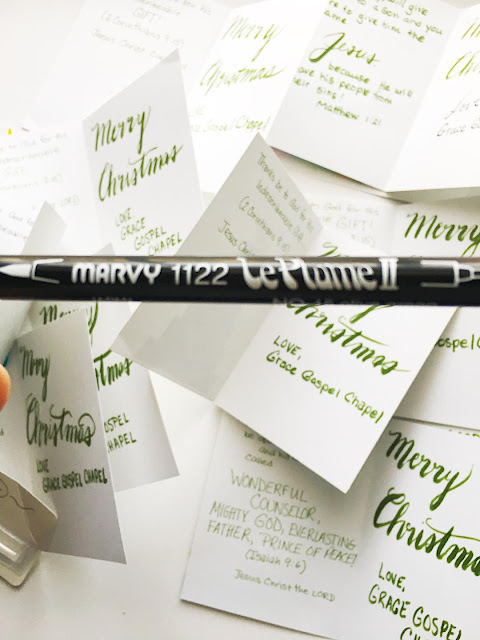 GIFT!
(2 Corinthians 9:15)
Jesus Christ
Merry
Christmas
Gospel Chapel
will give
to a Son and you
to give him the
Jesus
because he will
his people from
sins!
Matthew 1:21
Love,
Grace
Merry
Christmas
LOVE,
GRACE
GOSPEL
CHAPEL
Thanks be to God for his
(2 Corinthians 9:15)
Jesus Christ
GIFT!
Merry
MARVY 1122 Le Plume II
Christmas
LOVE,
Grace Gospel Chapel
Gospel Chapel
Merry
Christmas
LOVE
GRACE GOSPEL CHAPEL
GOSPEL
CHAPEL
and his
called
WONDERFUL
COUNSELOR,
MIGHTY GOD, EVERLASTING
FATHER, PRINCE OF PEACE!
(Isaiah 9:6)
Jesus Christ the LORD
Merry
Christmas
LOVE,
GRACE GOSPEL